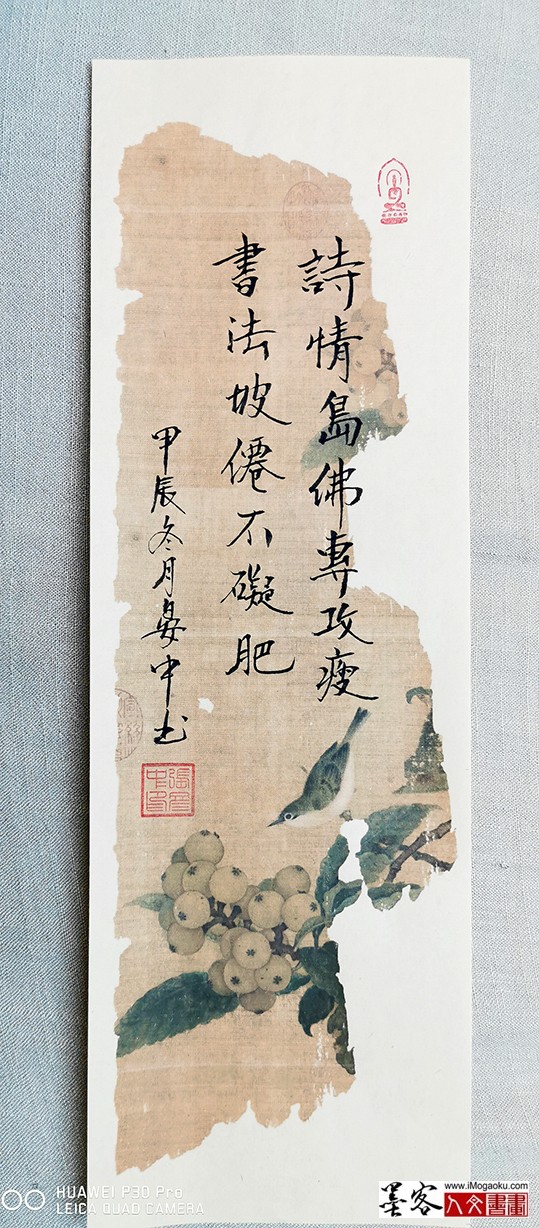 詩情島佛專攻瘦
書法坡僊不礙肥
甲辰冬月晏中书
HUAWEI P30 Pro
LEICA QUAD CAMERA
www.iMogaoku.com
墨客
人文書畫